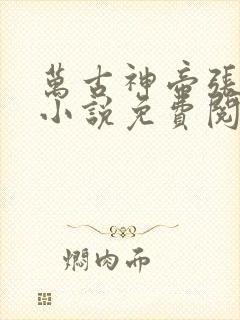 萬古神帝張
小說免費閱
燜肉面